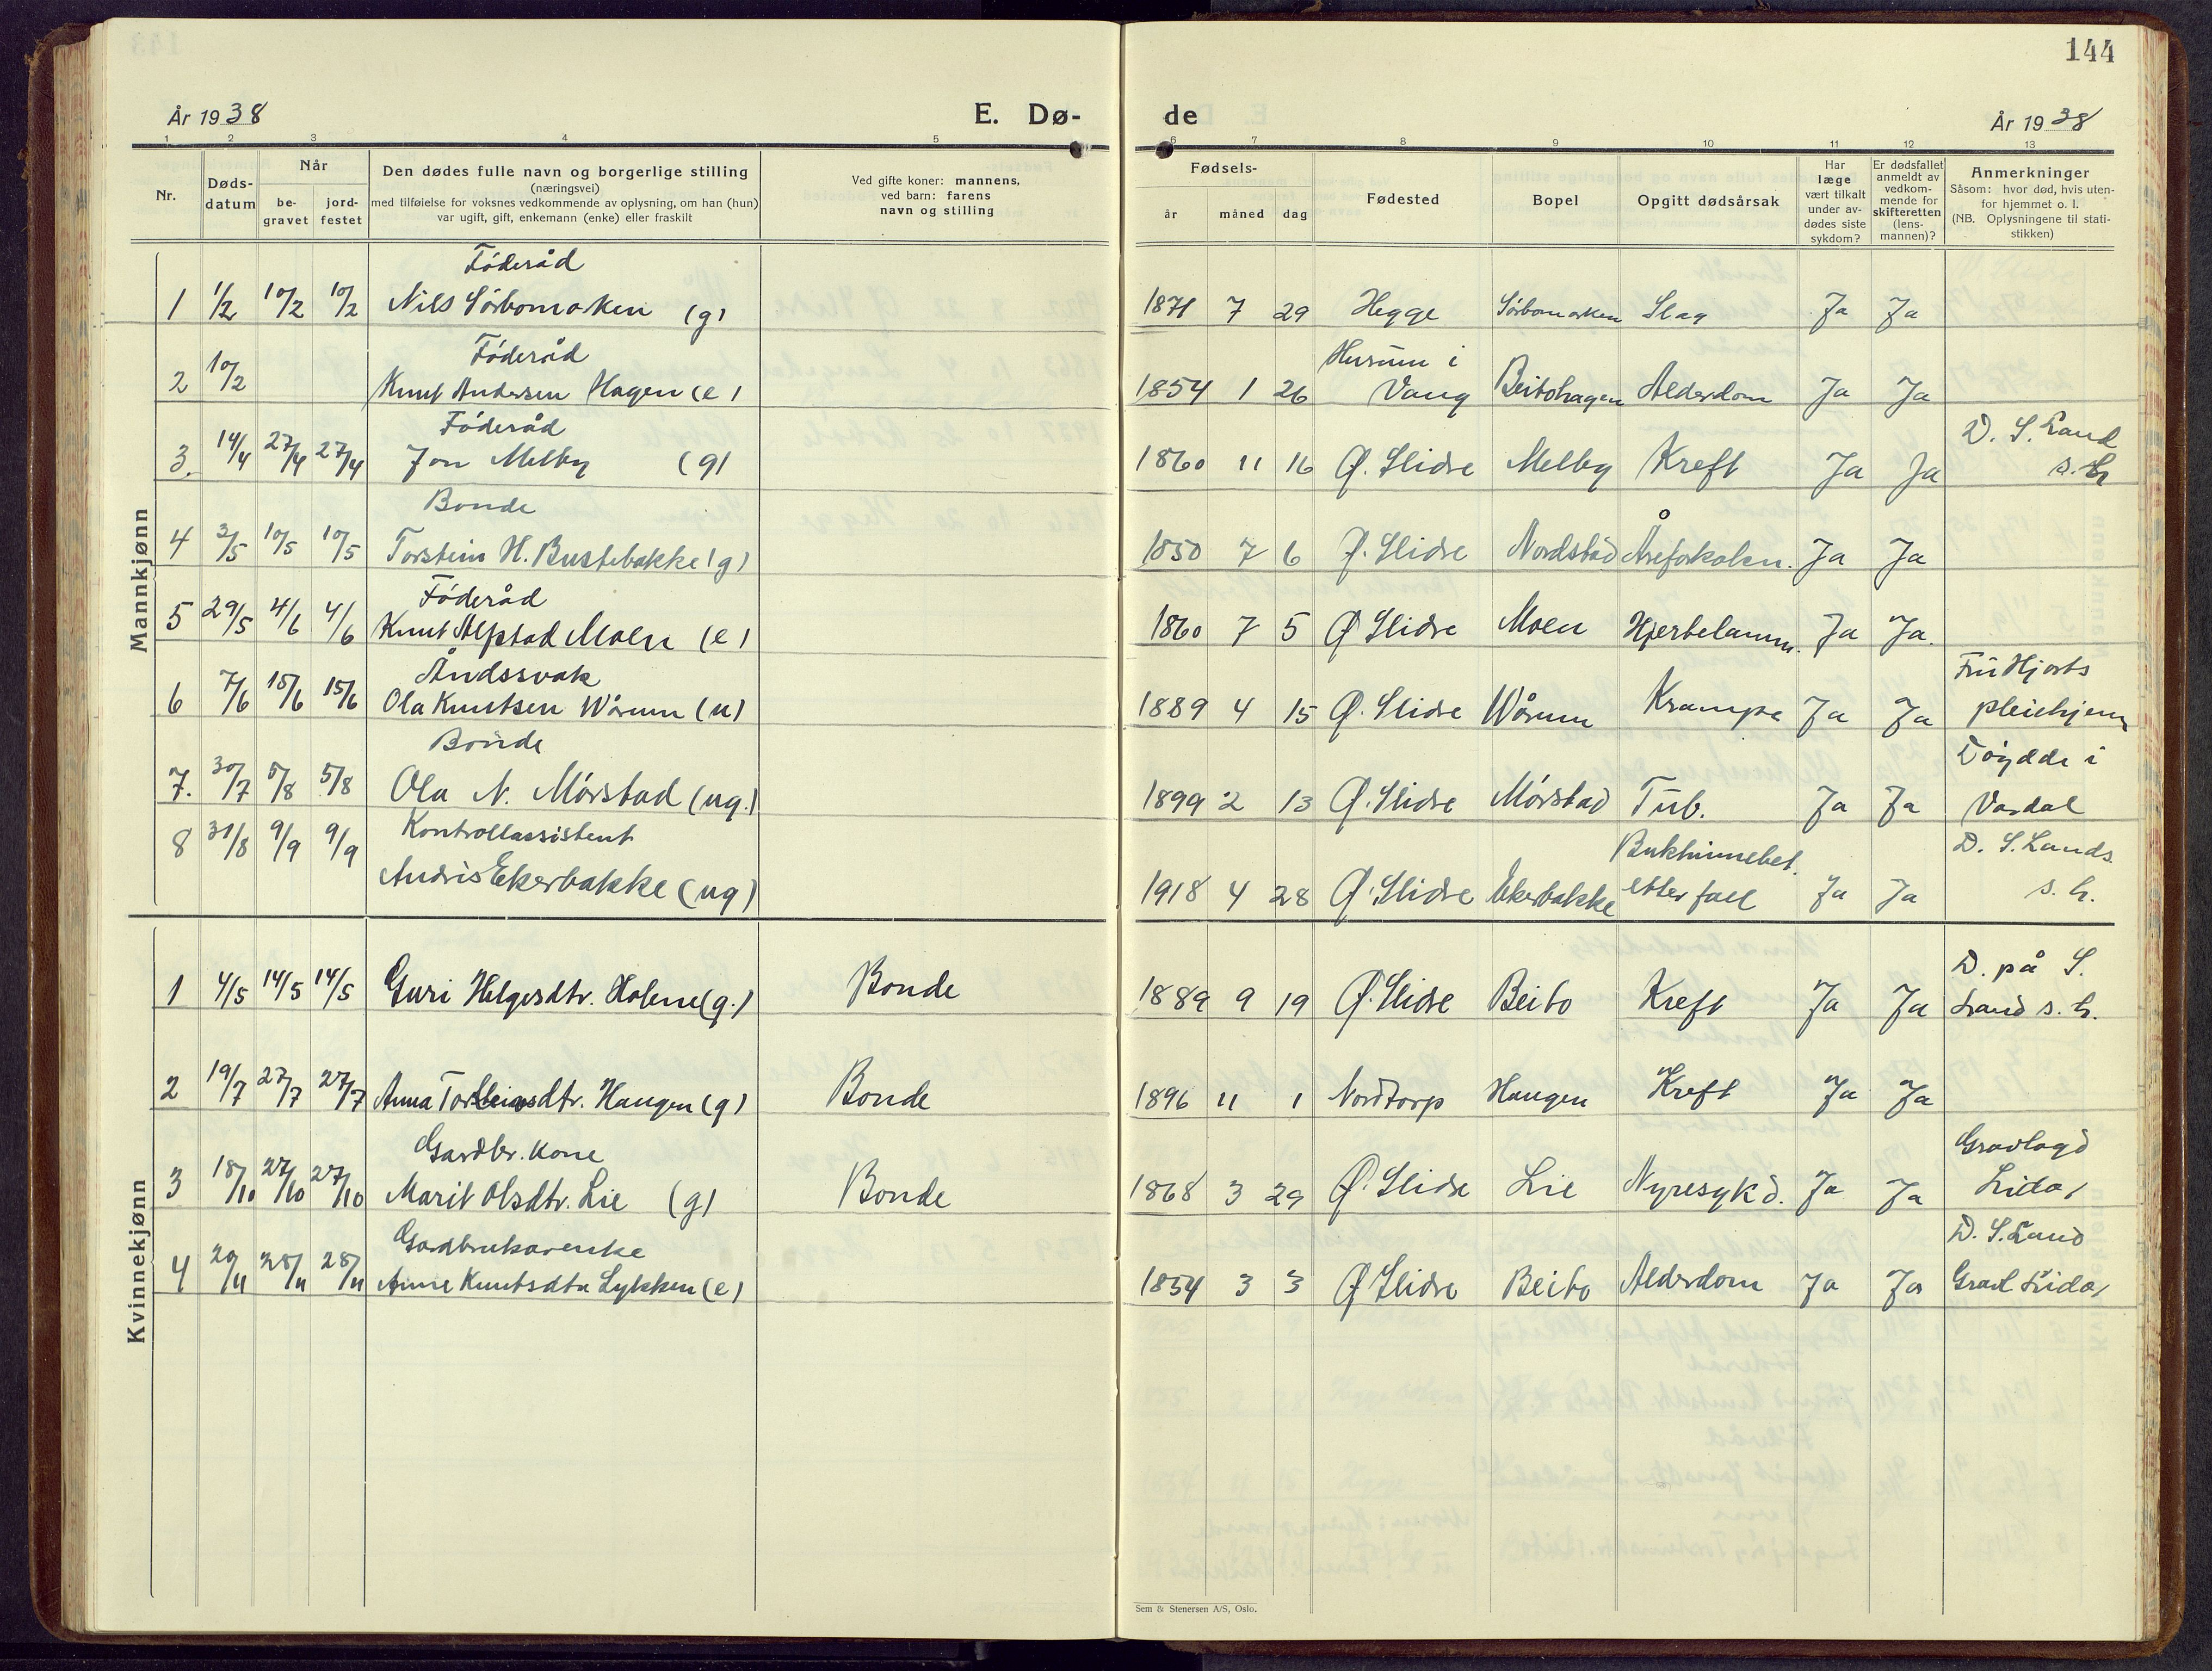 144
År 1938
E. Dø-
de
År 1938
1 2 3 4 5
6 7 8 9 10 11 12 13
Nr.
Døds-
datum
Når
be-
gravet
jord-
festet
Den dødes fulle navn og borgerlige stilling
(næringsvei)
med tilføielse for voksnes vedkommende av oplysning, om han (hun)
var ugift, gift, enkemann (enke) eller fraskilt
Ved gifte koner: mannens,
ved barn: farens
navn og stilling
Fødsels-
år måned dag
Fødested
Bopel
Opgitt dødsårsak
Har
læge
vært tilkalt
under av-
dødes siste
sykdom?
Er dødsfallet
anmeldt av
vedkom-
mende for
skifteretten
(lens-
mannen)?
Anmerkninger
Såsom: hvor død, hvis uten-
for hjemmet o. l.
(NB. Oplysningene til stati-
stikken)
Mannkjønn
Føderåd
1 1/2 10/2 10/2 Nils Sørbomoken (g) 1871 7 29 Hegge Slag Ja Ja
Føderåd
Husum i
2 10/2 Knut Andersen Hagen (e) 1854 1 26 Vang Beitohagen Alderdom Ja Ja
Føderåd
D. S. Land
3. 14/4 27/4 27/4 Jon Melby (g) 1860 11 16 Ø. Slidre Melby Kreft Ja Ja s.h
Bonde
4 3/5 10/5 10/5 Torstein H. Bustebakke (g) 1850 7 6 Ø. Slidre Nordstad Åreforkalkn. Ja Ja
Føderåd
5 29/5 4/6 4/6 Knut Alfstad Moen (e) 1860 7 5 Ø Slidre Moen Hjertelamm. Ja Ja.
Åndssvak
Fru Hjorts
6 7/6 15/6 15/6 Ola Knutsen Wårum (u) 1889 4 15 Ø. Slidre Wårum Krampe Ja Ja pleiehjem
Bonde
Døydde i
7. 30/7 5/8 5/8 Ola N. Mørstad (ug.) 1899 2 13 Ø. Slidre Mørstad Tub. Ja Ja Vardal
Kontrollassistent
Bukhinnebet.
D. S. Lands
8 31/8 9/9 9/9 Andris Ekerbakke (ug) 1918 4 28 Ø. Slidre Ekerbakke etter fall Ja Ja s. h.
Kvinnekjønn
D. på S.
1 4/5 14/5 14/5 Guri Helgesdtr. Holene (g.) Bonde 1889 9 19 Ø. Slidre Beito Kreft Ja Ja Land s. h.
2 19/7 27/7 27/7 Anna Torsteinsdtr. Haugen (g) Bonde 1896 11 1 Nordtorp Haugen Kreft Ja Ja
Gardbr. kone
Gravlagd
3 18/10 27/10 27/10 Marit Olsdtr. Lie (g) Bonde 1868 3 29 Ø. Slidre Lie Nyresykd. Ja Ja Lidar
Gardbrukarenke
D. S. Land
4 20/11 28/11 28/11 Anne Knutsdtr Lykken (e) 1854 3 3 Ø Slidre Beito Alderdom Ja Ja Gravl Lidar
Sem & Stenersen A/S, Oslo.